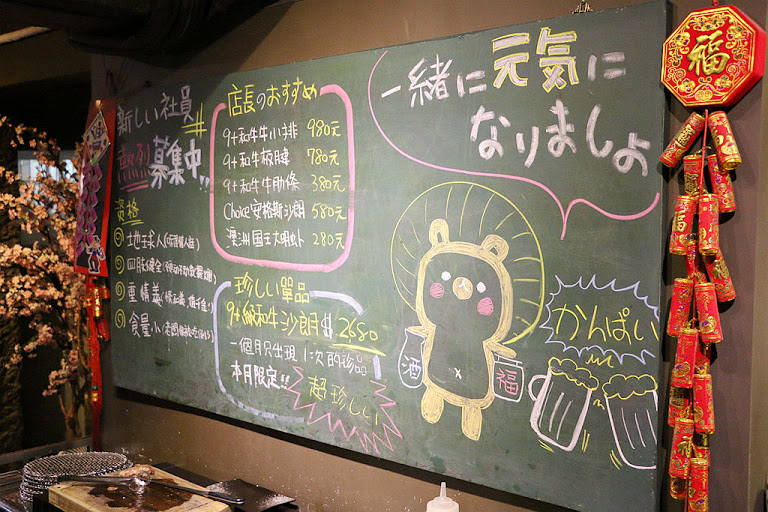 新しい社員
熱烈
募集中!!
資格
① 地球人
② 四肢健全
③ 重情義
④ 食量小
店長のおすすめ
9+和牛牛小排 980元
9+和牛板腱 780元
9+和牛牛肋條 380元
Choice安格斯沙朗 580元
澳洲国王大明虾 280元
珍しい單品
9+級和牛沙朗 $2680
一個月只出現1次的珍品
本月限定!!
超珍しい
一緒に元気に
なりましょ
酒
福
かんぱい
福